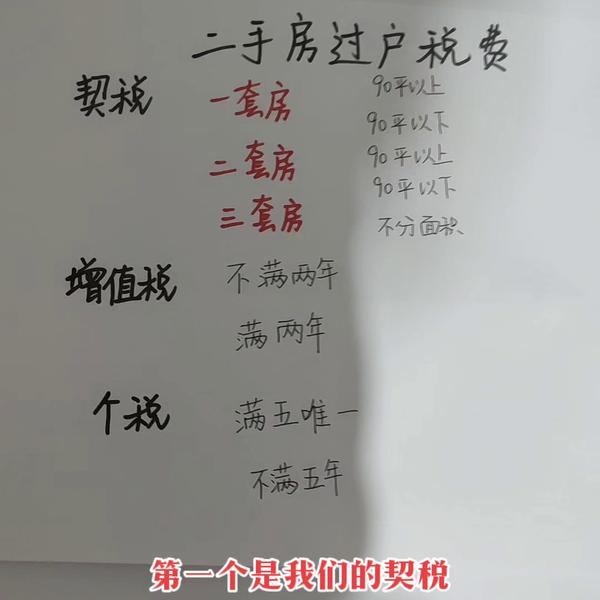 二手房过户税费
契税 一套房 90平以上
90平以下
二套房 90平以上
90平以下
三套房 不分面积
增值税 不满两年
满两年
个税 满五唯一
不满五年
第一个是我们的契税